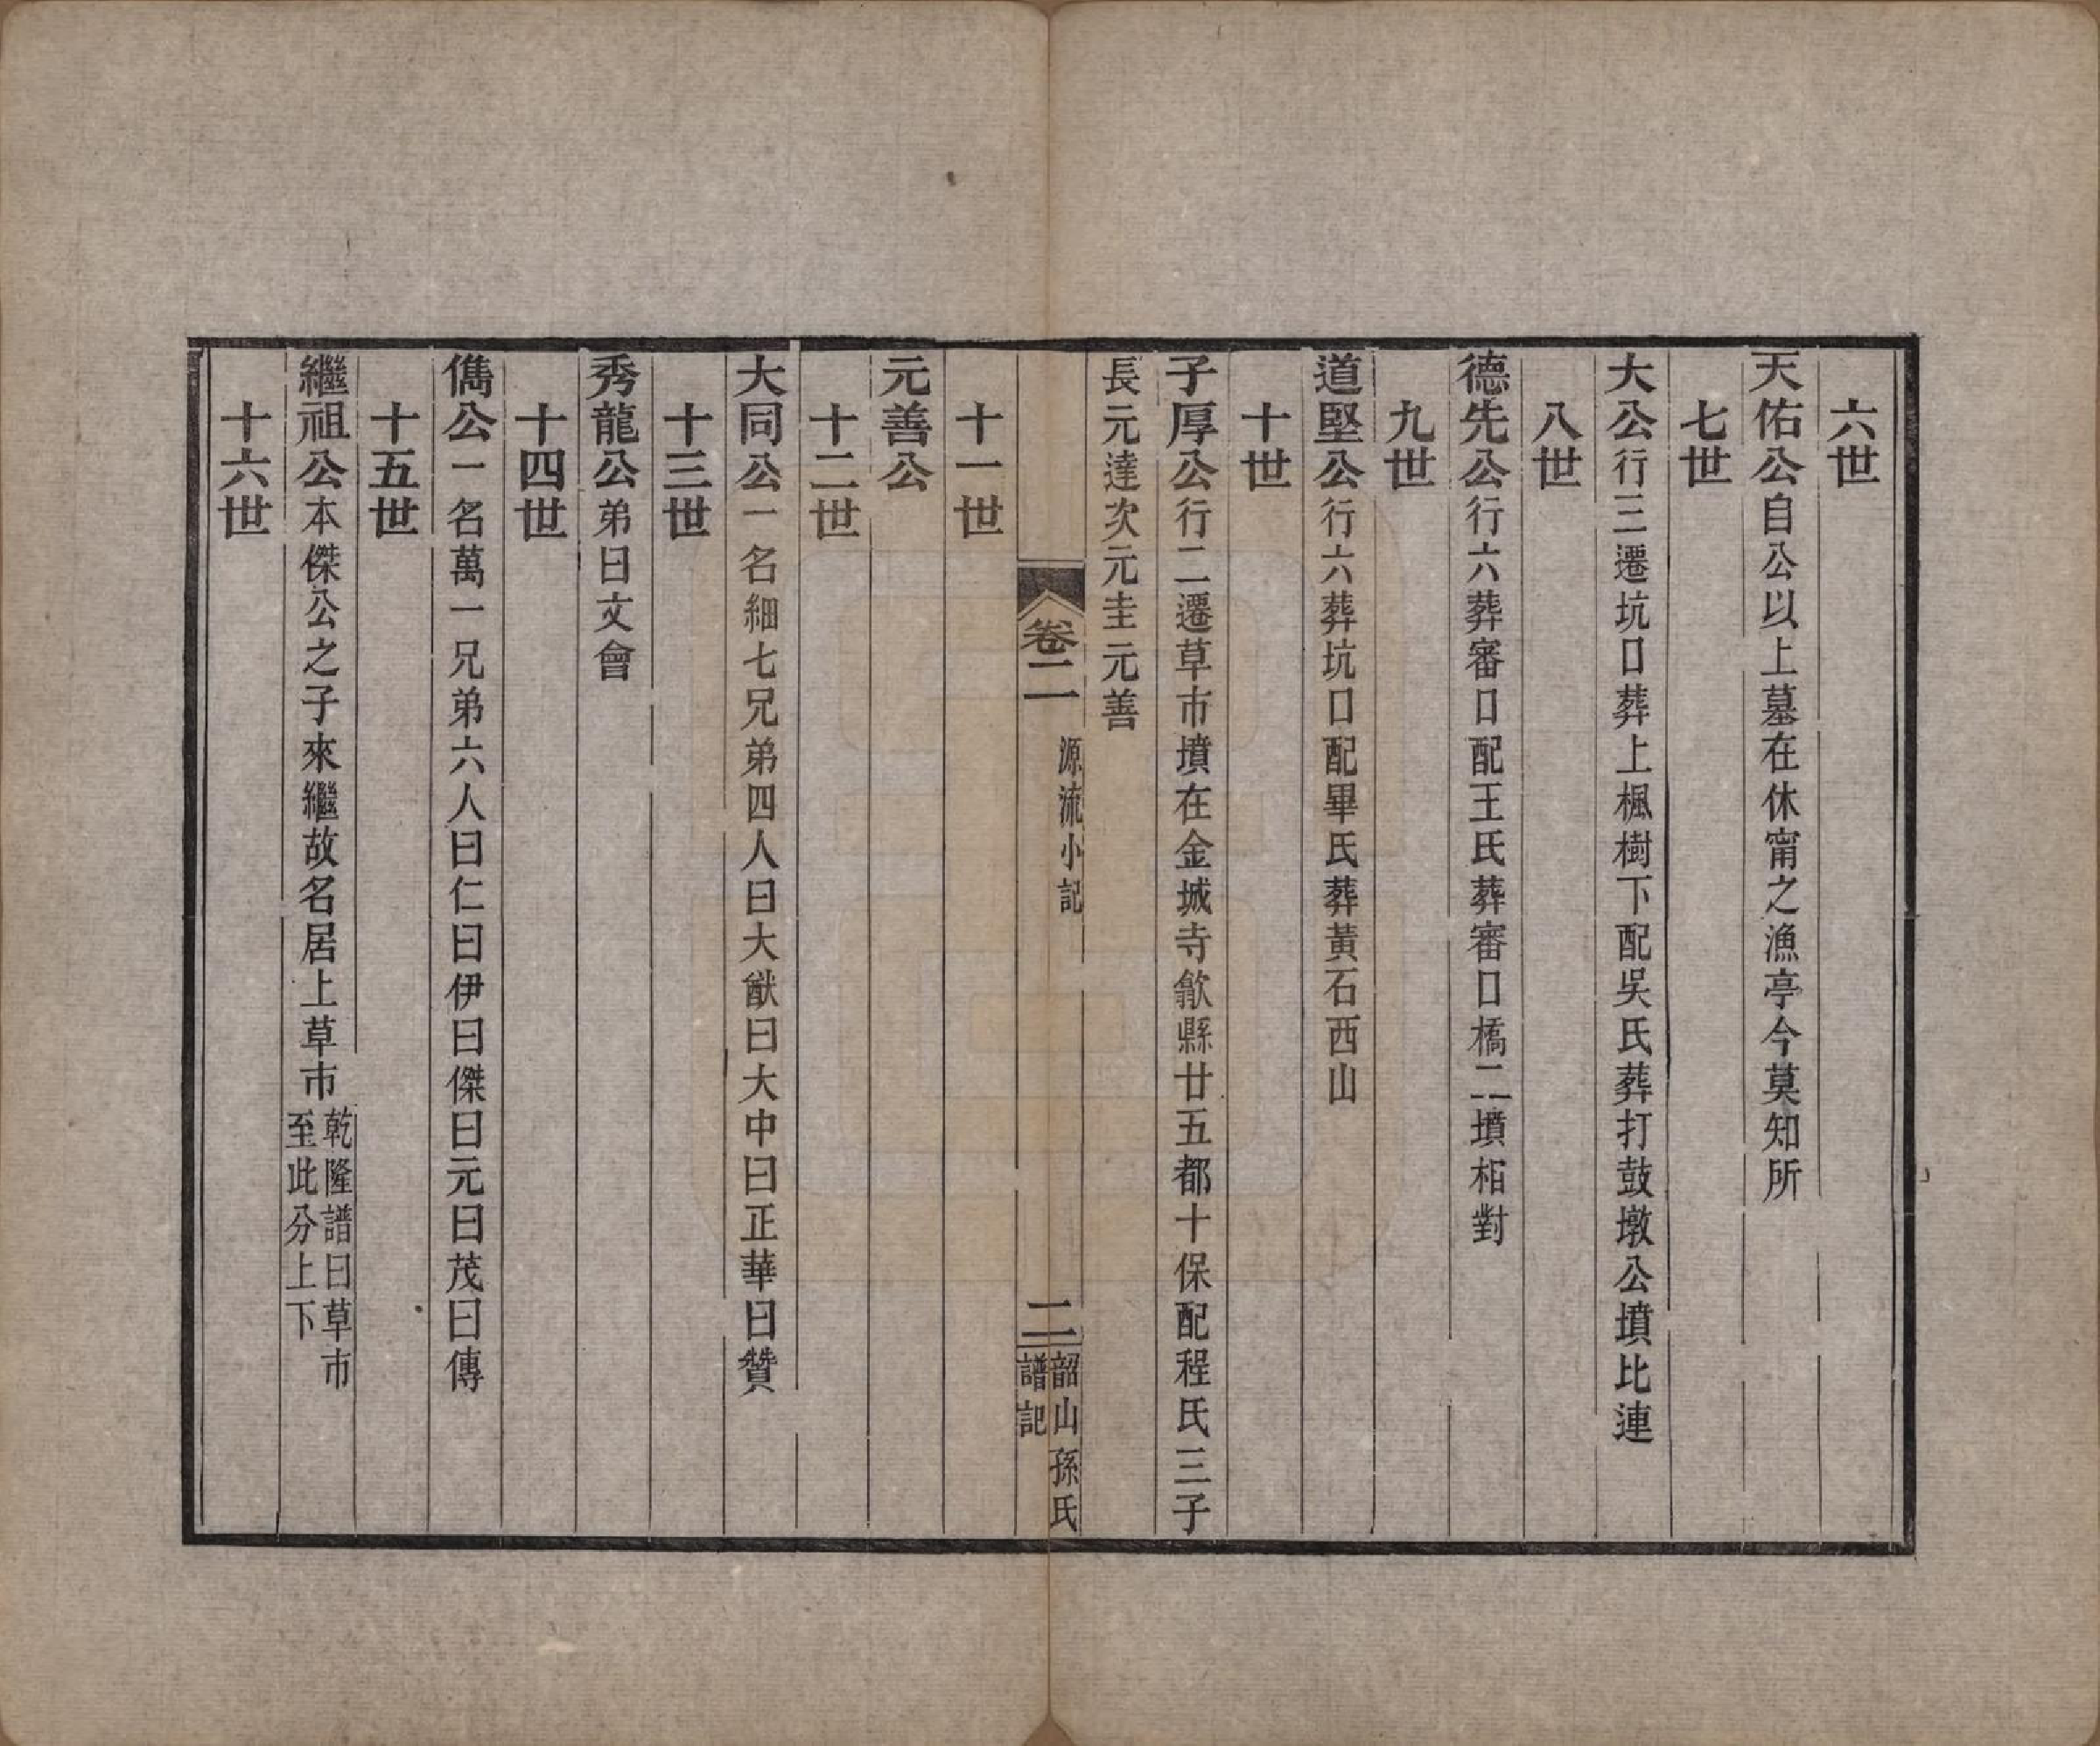 六世
天佑公自公以上墓在休甯之漁亭今莫知所
七世
大公行三遷坑口葬上楓樹下配吳氏葬打鼓墩公墳比連
八世
德先公行六葬審口配王氏葬審口橋二墳相對
九世
道堅公行六葬坑口配畢氏葬黃石西山
十世
子厚公行二遷草市墳在金城寺歙縣廿五都十保配程氏三子
長元達次元圭元善
卷二
源流小記
二
韶山孫氏
譜記
十一世
元善公
十二世
大同公一名細七兄弟四人曰大猷曰大中曰正華曰贊
十三世
秀龍公弟曰文會
十四世
儁公一名萬一兄弟六人曰仁曰伊曰傑曰元曰茂曰傳
十五世
繼祖公本傑公之子來繼故名居上草市
乾隆譜曰草市
至此分上下
十六世